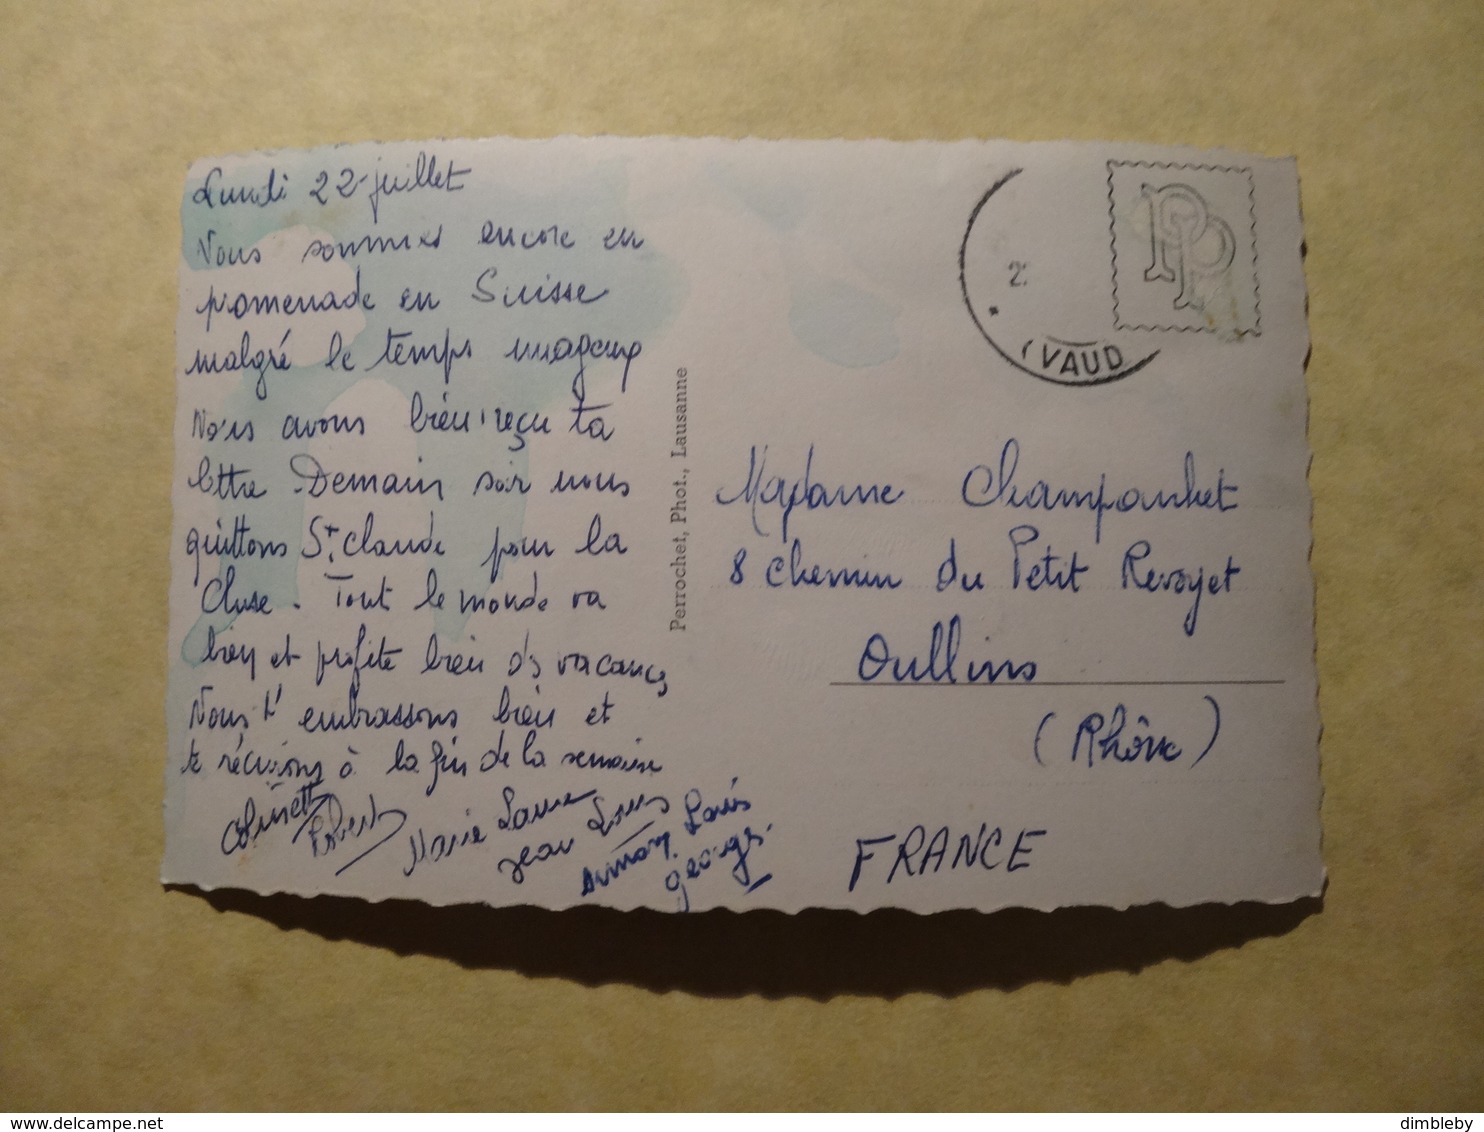 Lundi 22 juillet
Nous sommes encore en
promenade en Suisse
malgré le temps nuageux
Nous avons bien reçu ta
lettre. Demain soir nous
quittons St. Claude pour la
Cluse. Tout le monde va
bien et profite bien des vacances
Nous t'embrassons bien et
te récrirons à la fin de la semaine
Robert
Marie Laure
Jean Louis
Louis
Georges
Perrochet, Phot., Lausanne
2
(VAUD
PP
Madame Champouhet
8 chemin du Petit Revoyet
Oullins
(Rhône)
FRANCE
delcampe.net
dimbleby